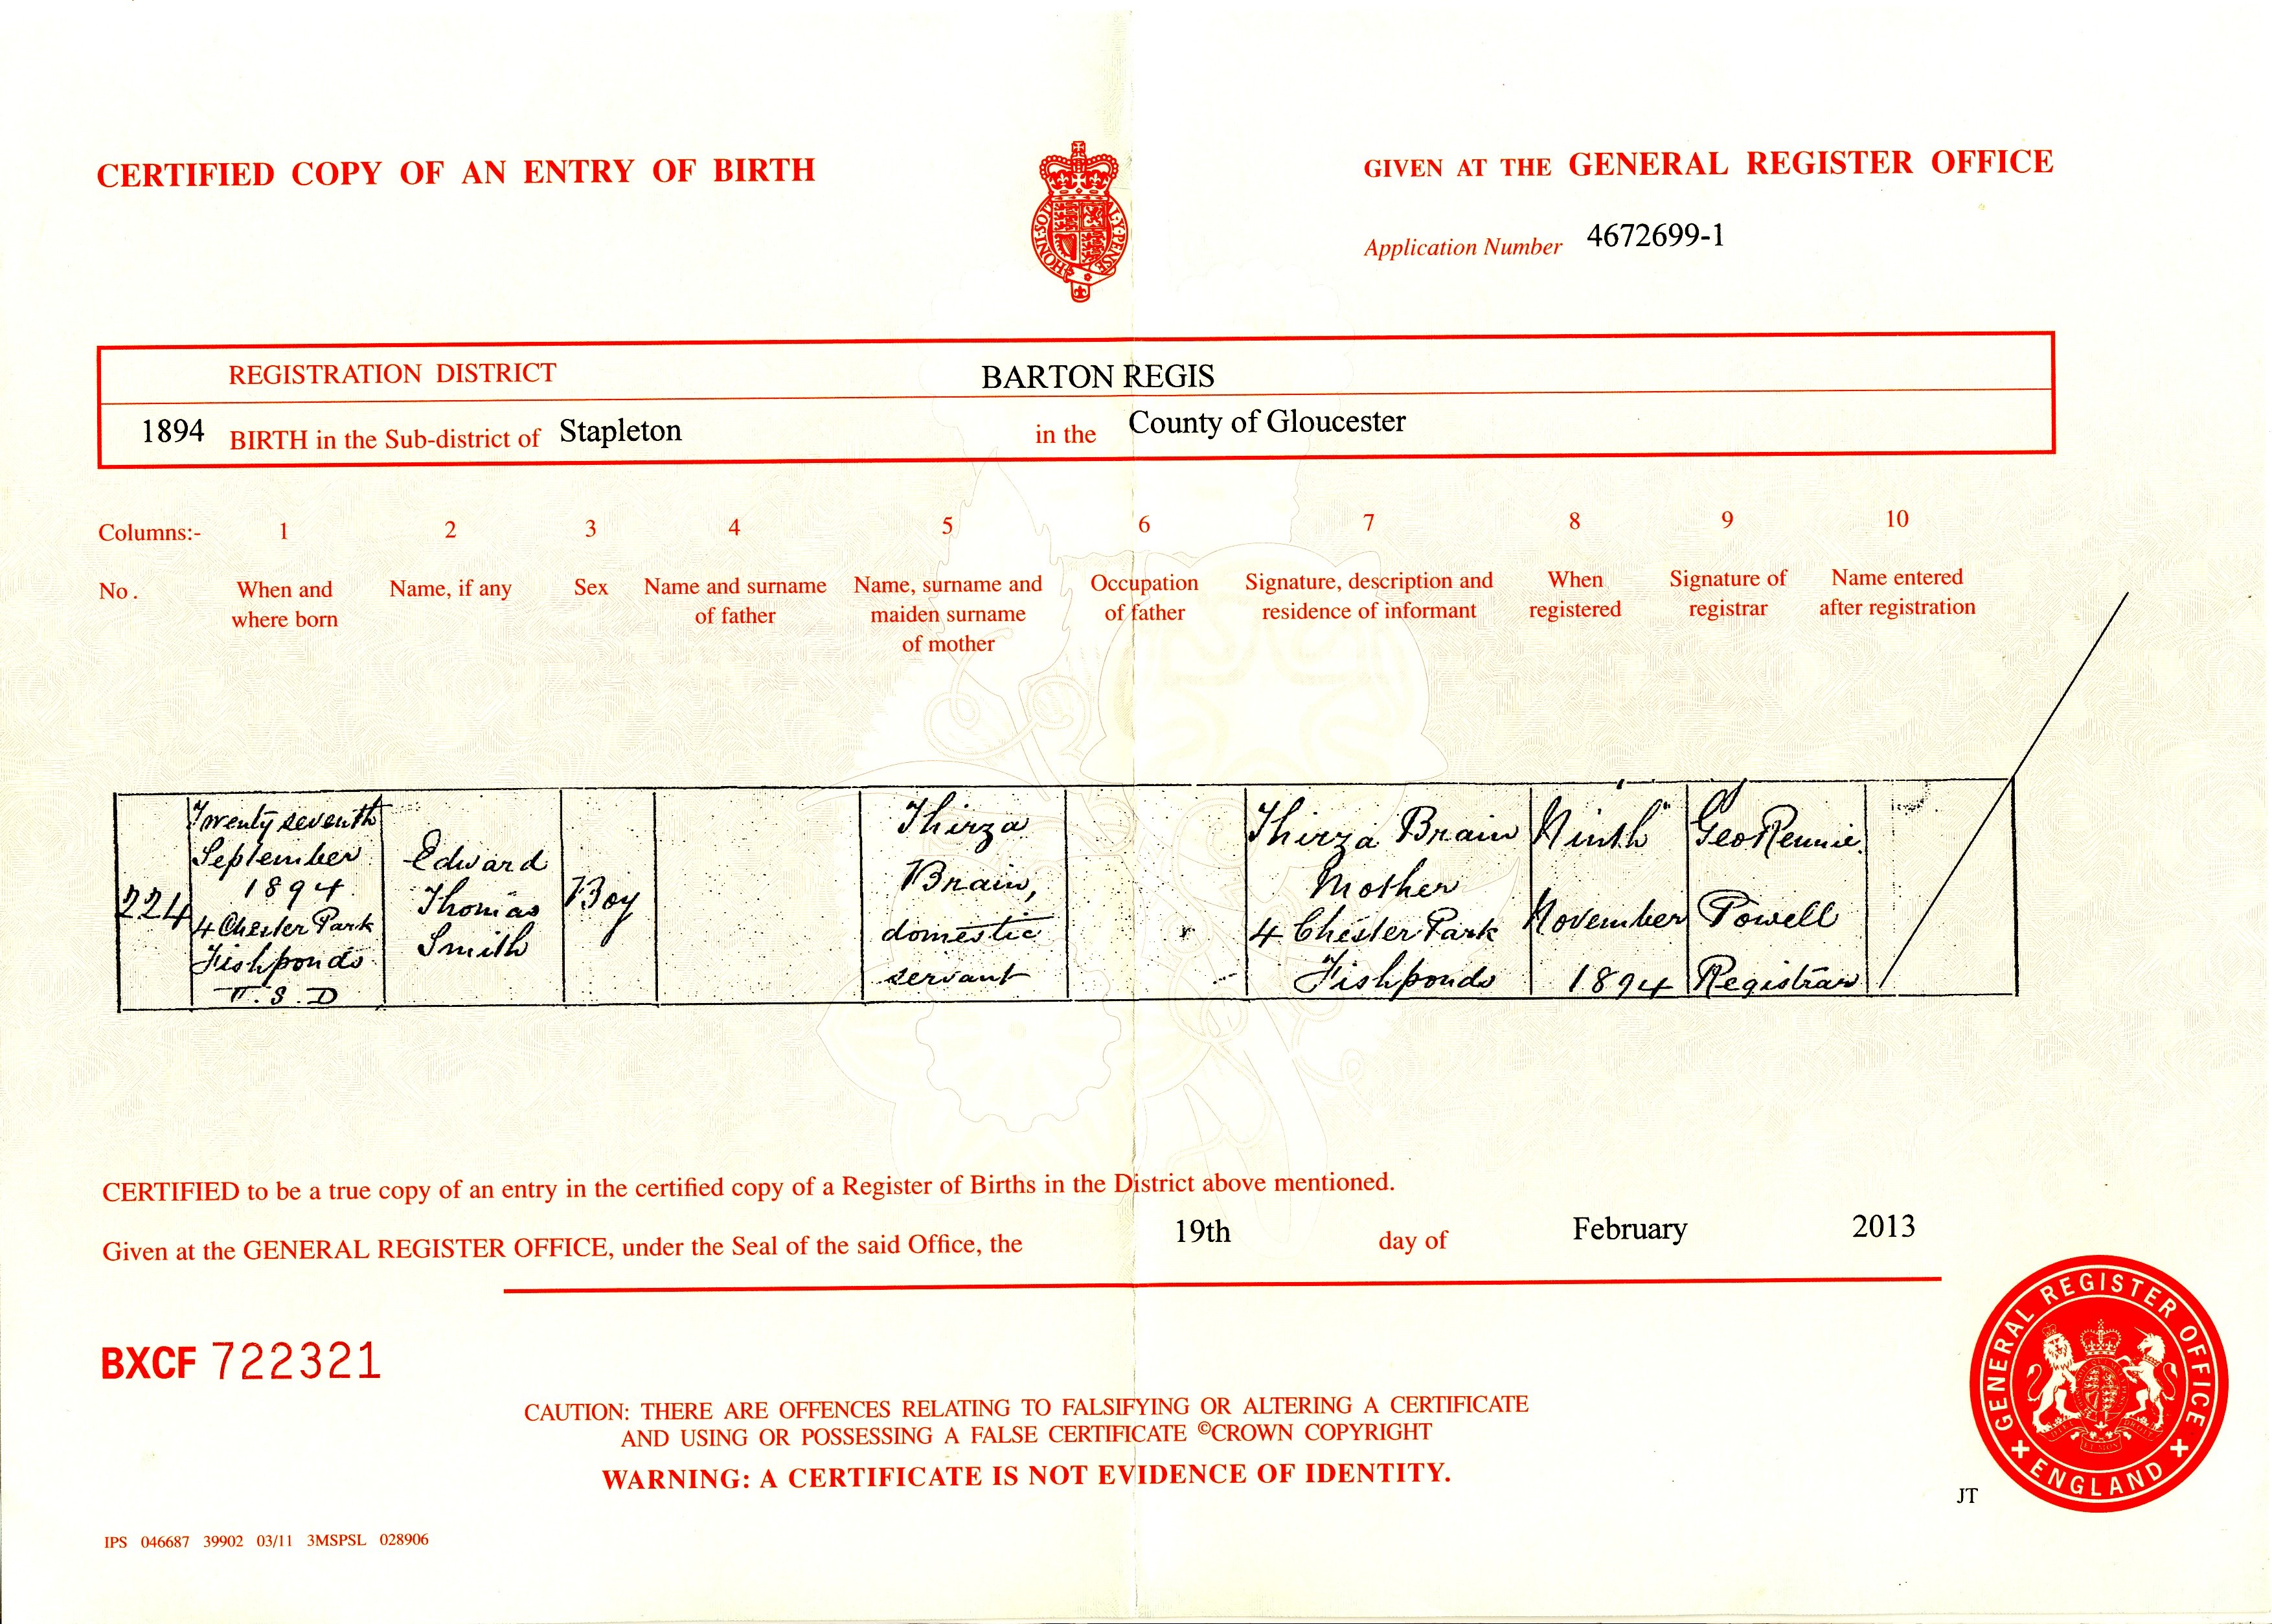 CERTIFIED COPY OF AN ENTRY OF BIRTH
GIVEN AT THE GENERAL REGISTER OFFICE
HONI·SOIT
AL·Y·PENSE
Application Number 4672699-1
REGISTRATION DISTRICT BARTON REGIS
1894 BIRTH in the Sub-district of Stapleton in the County of Gloucester
Columns:- 1 2 3 4 5 6 7 8 9 10
No. When and where born Name, if any Sex Name and surname of father Name, surname and maiden surname of mother Occupation of father Signature, description and residence of informant When registered Signature of registrar Name entered after registration
224
Twenty seventh
September
1894
4 Chester Park
Fishponds
U.S.D
Edward
Thomas
Smith
Boy
Thirza
Brain,
domestic
servant
Thirza Brain
Mother
4 Chester Park
Fishponds
Ninth
November
1894
Geo Rennie
Powell
Registrar
CERTIFIED to be a true copy of an entry in the certified copy of a Register of Births in the District above mentioned.
Given at the GENERAL REGISTER OFFICE, under the Seal of the said Office, the 19th day of February 2013
BXCF 722321
CAUTION: THERE ARE OFFENCES RELATING TO FALSIFYING OR ALTERING A CERTIFICATE
AND USING OR POSSESSING A FALSE CERTIFICATE ©CROWN COPYRIGHT
WARNING: A CERTIFICATE IS NOT EVIDENCE OF IDENTITY.
GENERAL REGISTER OFFICE
ENGLAND
JT
IPS 046687 39902 03/11 3MSPSL 028906